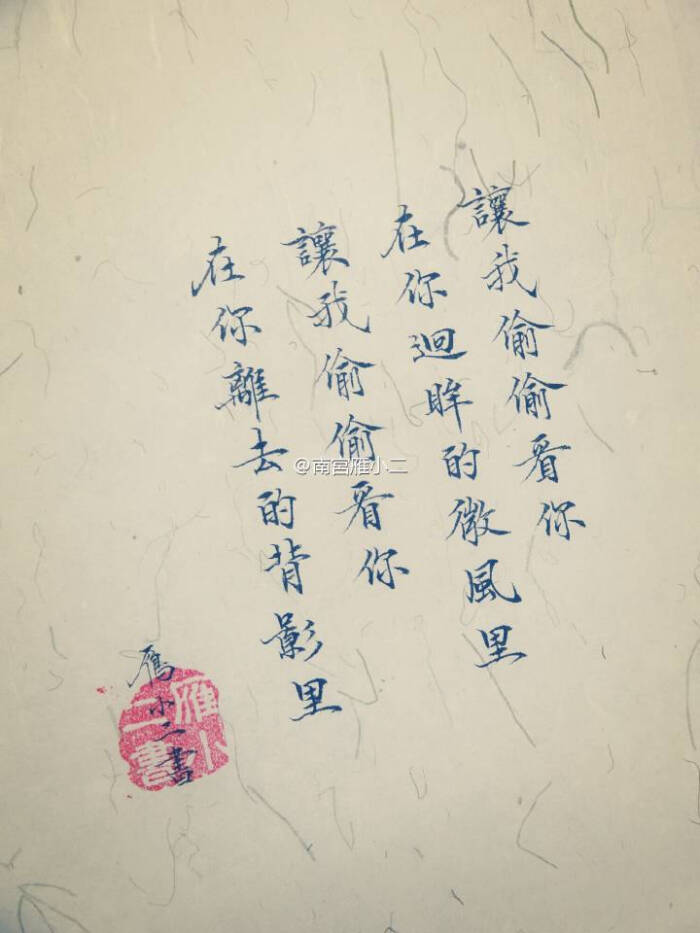 讓我偷偷看你
在你迴眸的微風里
讓我偷偷看你
在你離去的背影里
雁小二書
雁小二書
@南宫雁小二